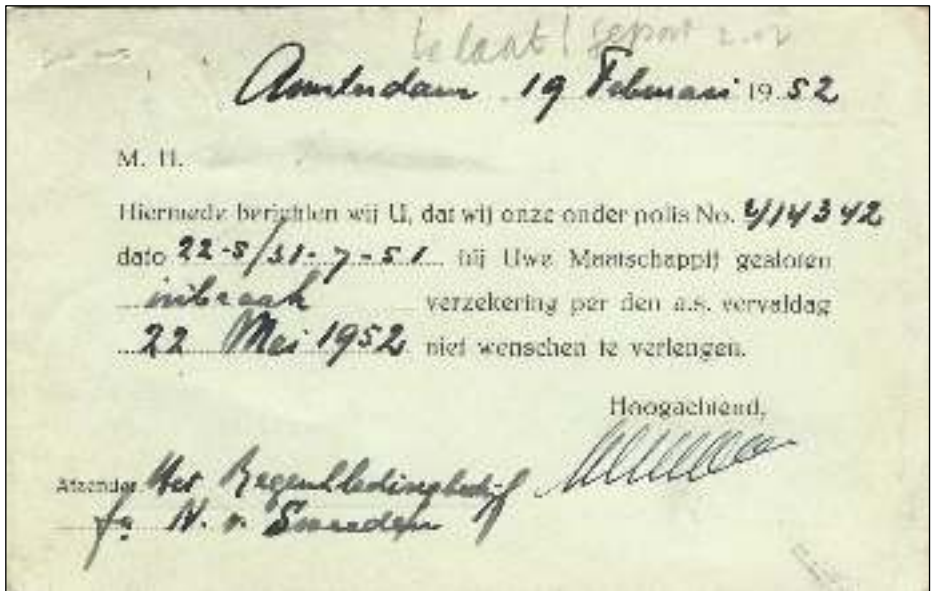 te laat!
Amsterdam 19 Februari 1952
M. H.
Hiermede berichten wij U, dat wij onze onder polis No. 414342
dato 22-5/31-7-51 bij Uwe Maatschappij gesloten
inbraak verzekering per den a.s. vervaldag
22 Mei 1952 niet wenschen te verlengen.
Hoogachtend,
Afzender Het Regenkledingbedrijf
fa N. v. Sweeden